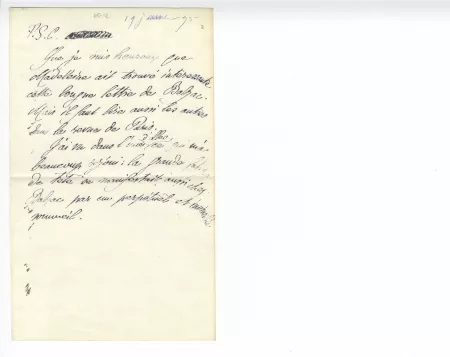 19
P.S.C.
Que je suis heureux que
Madeleine ait trouvé intéressante
cette longue lettre de Balzac.
Mais il faut lire aussi les autres
dans la revue de Paris.
J'ai vu dans l'une d'elles
beaucoup : la grande
de tête se manifestait aussi chez
Balzac par un perpétuel et
sommeil.